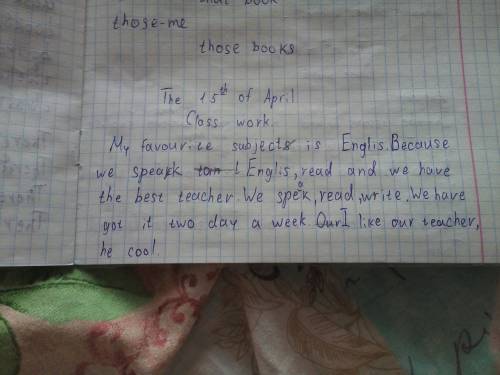 that book
those-me
those books
The 15th of April
Class work.
My favourite subjects is Englis. Because
we speak Englis, read and we have
the best teacher. We speak, read, write. We have
got it two day a week. Our I like our teacher,
he cool.